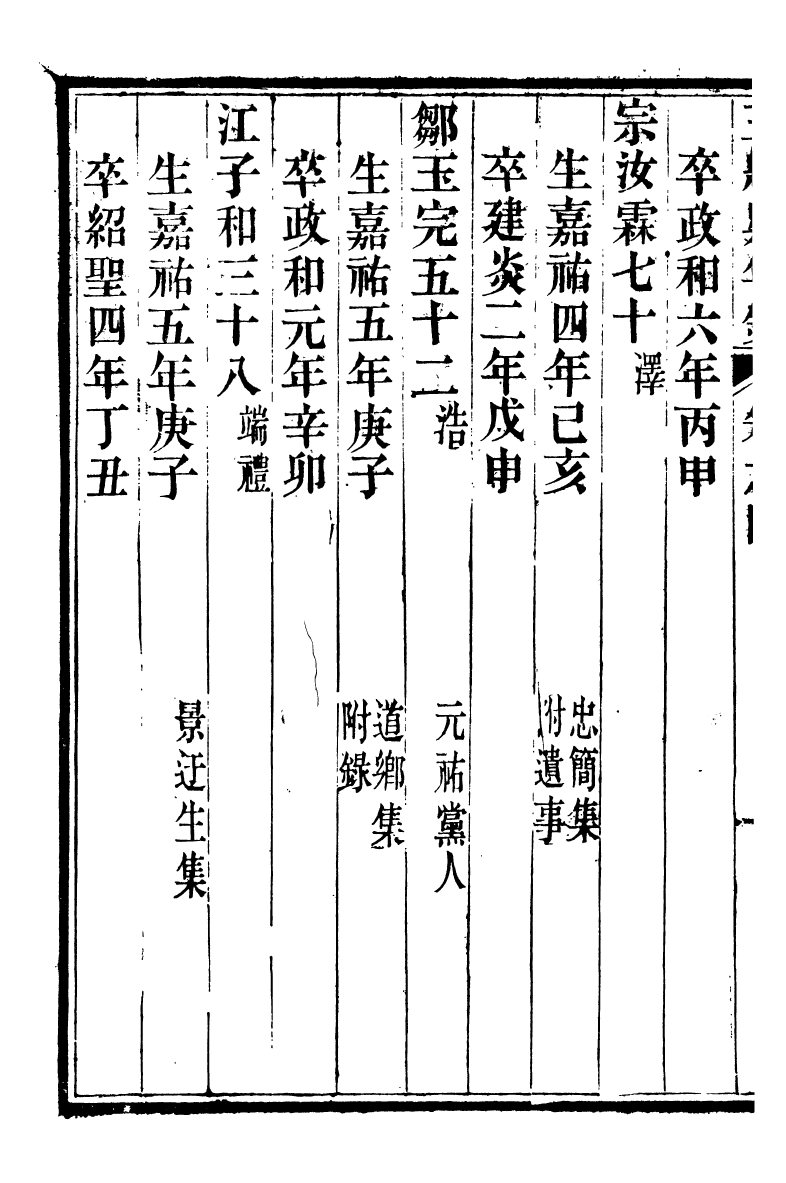 卒政和六年丙申
宗汝霖七十澤
生嘉祐四年己亥
忠簡集
附遺事
卒建炎二年戊申
鄒玉完五十二浩
元祐黨人
生嘉祐五年庚子
道鄉集
附錄
卒政和元年辛卯
江子和三十八端禮
生嘉祐五年庚子
景迂生集
卒紹聖四年丁丑